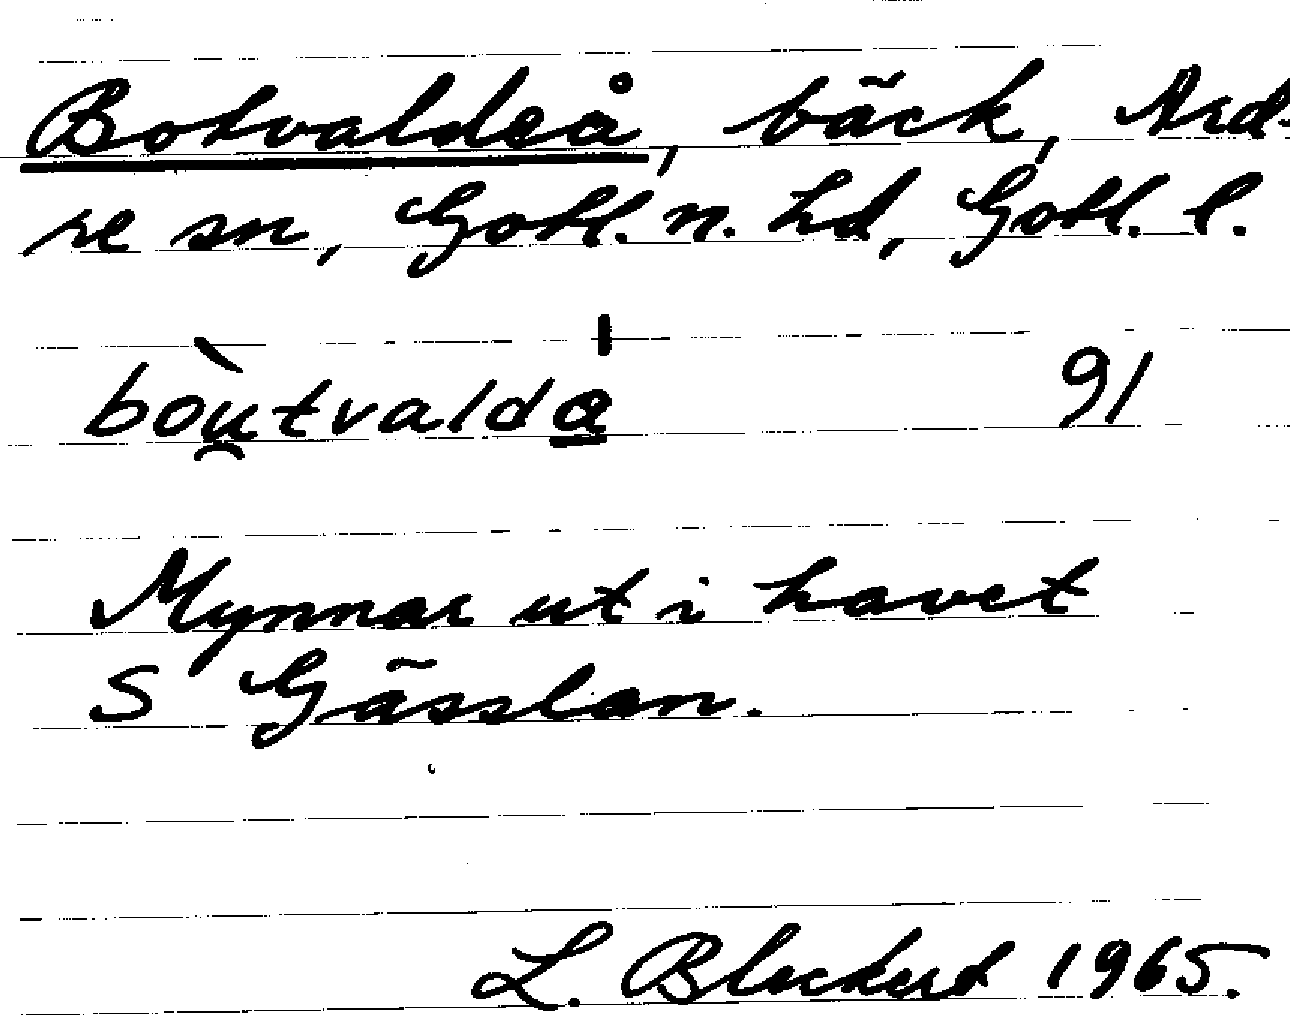 Botvaldeå, bäck, Ard-
re sn, Gotl. n. hd, Gotl. l.
bòu̯tvaldа̲ 91
Mynnar ut i havet
S Gässlan.
L. Bleckert 1965.